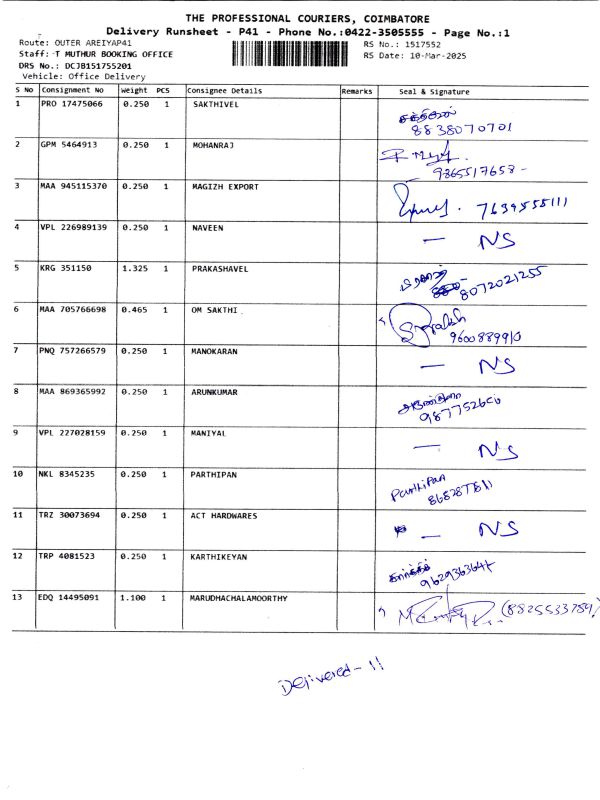 THE PROFESSIONAL COURIERS, COIMBATORE
Delivery Runsheet - P41 - Phone No.:0422-3505555 - Page No.:1
Route: OUTER AREIYAP41 RS No.: 1517552
Staff: T MUTHUR BOOKING OFFICE RS Date: 10-Mar-2025
DRS No.: DCJB151755201
Vehicle: Office Delivery
S No Consignment No Weight PCS Consignee Details Remarks Seal & Signature
1 PRO 17475066 0.250 1 SAKTHIVEL
8838070701
2 GPM 5464913 0.250 1 MOHANRAJ
9865517658 -
3 MAA 945115370 0.250 1 MAGIZH EXPORT 7639555111
4 VPL 226989139 0.250 1 NAVEEN — NS
5 KRG 351150 1.325 1 PRAKASHAVEL
8072021255
6 MAA 705766698 0.465 1 OM SAKTHI
9600889910
7 PNQ 757266579 0.250 1 MANOKARAN — NS
8 MAA 869365992 0.250 1 ARUNKUMAR
9 VPL 227028159 0.250 1 MANIYAL — NS
10 NKL 8345235 0.250 1 PARTHIPAN Parthipan
11 TRZ 30073694 0.250 1 ACT HARDWARES — NS
12 TRP 4081523 0.250 1 KARTHIKEYAN
13 EDQ 14495091 1.100 1 MARUDHACHALAMOORTHY (8825533759)
Delivered - 11